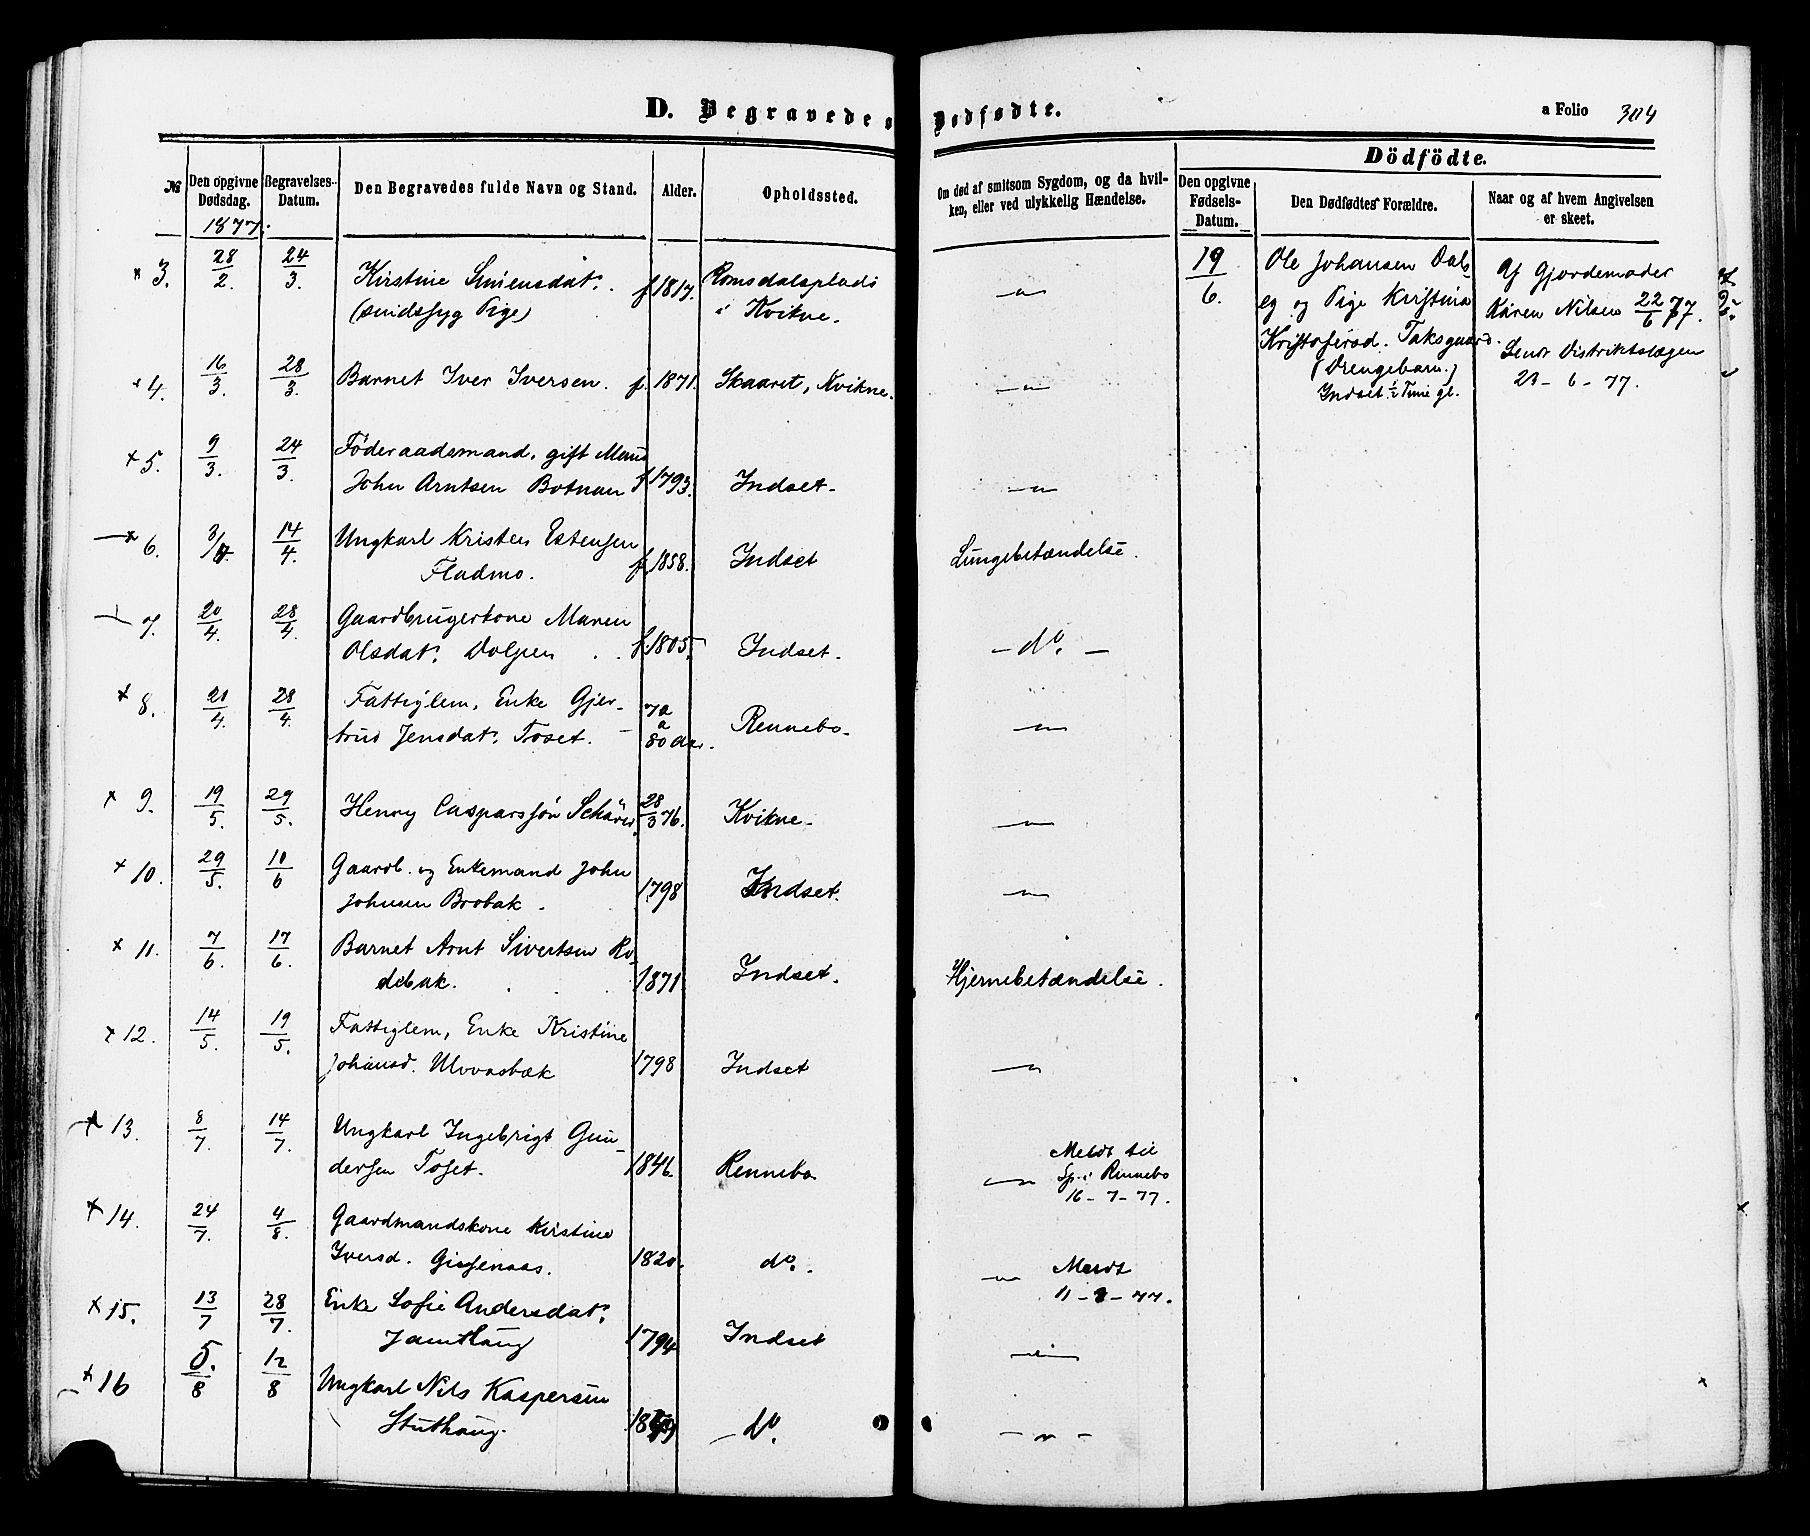 D. Begravede o
Dødfødte.
a Folio 304
№
Den opgivne Dødsdag.
1877.
Begravelses-Datum.
Den Begravedes fulde Navn og Stand.
Alder.
Opholdssted.
Om død af smitsom Sygdom, og da hvil-
ken, eller ved ulykkelig Hændelse.
Dödfödte.
Den opgivne Fødsels-Datum.
Den Dødfødtes Forældre.
Naar og af hvem Angivelsen
er skeet.
3. 28/2. 24/3. Kirstine Simensdat. f. 1817. Romsdalsplads
(sindssyg Pige) i Kvikne. — " —
19/6. Ole Johansen Dals
eg og Pige Kristina
Kristofersd. Taksgaard.
(Drengebarn.)
Indset ½ Time gl.
Af Gjordemoder
Karen Nilsen 22/6 77.
Sendt Distriktslægen
23-6-77.
4. 16/3. 28/3. Barnet Iver Iversen. f. 1871. Skaaret, Kvikne. — " —
5. 9/3. 24/3. Föderaadsmand, gift Mand
John Arntsen Botnan f 1793. Indset. — " —
6. 3/4. 14/4. Ungkarl Kristen Estensen
Fladmo. f. 1858. Indset Lungebetændelse.
7. 20/4. 28/4. Gaardbrugerkone Maren
Olsdat. Dolpen f. 1805. Indset. — do. —
8. 20/4. 28/4. Fattiglem, Enke Gjer-
trud Jensdat. Toset. 70 a 80 Aar. Rennebo. — " —
9. 19/5. 29/5. Henry Casparssøn Schärer. 28/3 76. Kvikne. — " —
10. 29/5. 10/6 Gaardb. og Enkemand John
Johnsen Brobak. 1798 Indset. — " —
11. 7/6. 17/6. Barnet Arnt Sivertsen Ro-
debak. 1871 Indset. Hjernebetændelse.
12. 14/5. 19/5. Fattiglem, Enke Kristine
Johansd. Ulvvasbæk 1798 Indset — " —
13. 8/7. 14/7. Ungkarl Ingebrigt Gun-
dersen Toset. 1846. Rennebo — " — Meldt til
Sp. i Rennebo
16-7-77.
14. 24/7. 4/8. Gaardmandskone Kirstine
Iversd. Gissenaas. 1820. do. — " — Meldt
11-8-77.
15. 13/7 28/7. Enke Sofie Andersdat.
Jamthaug 1794 Indset — " —
16 5./8 12/8 Ungkarl Nils Kaspersen
Stuthaug. — do. — " —